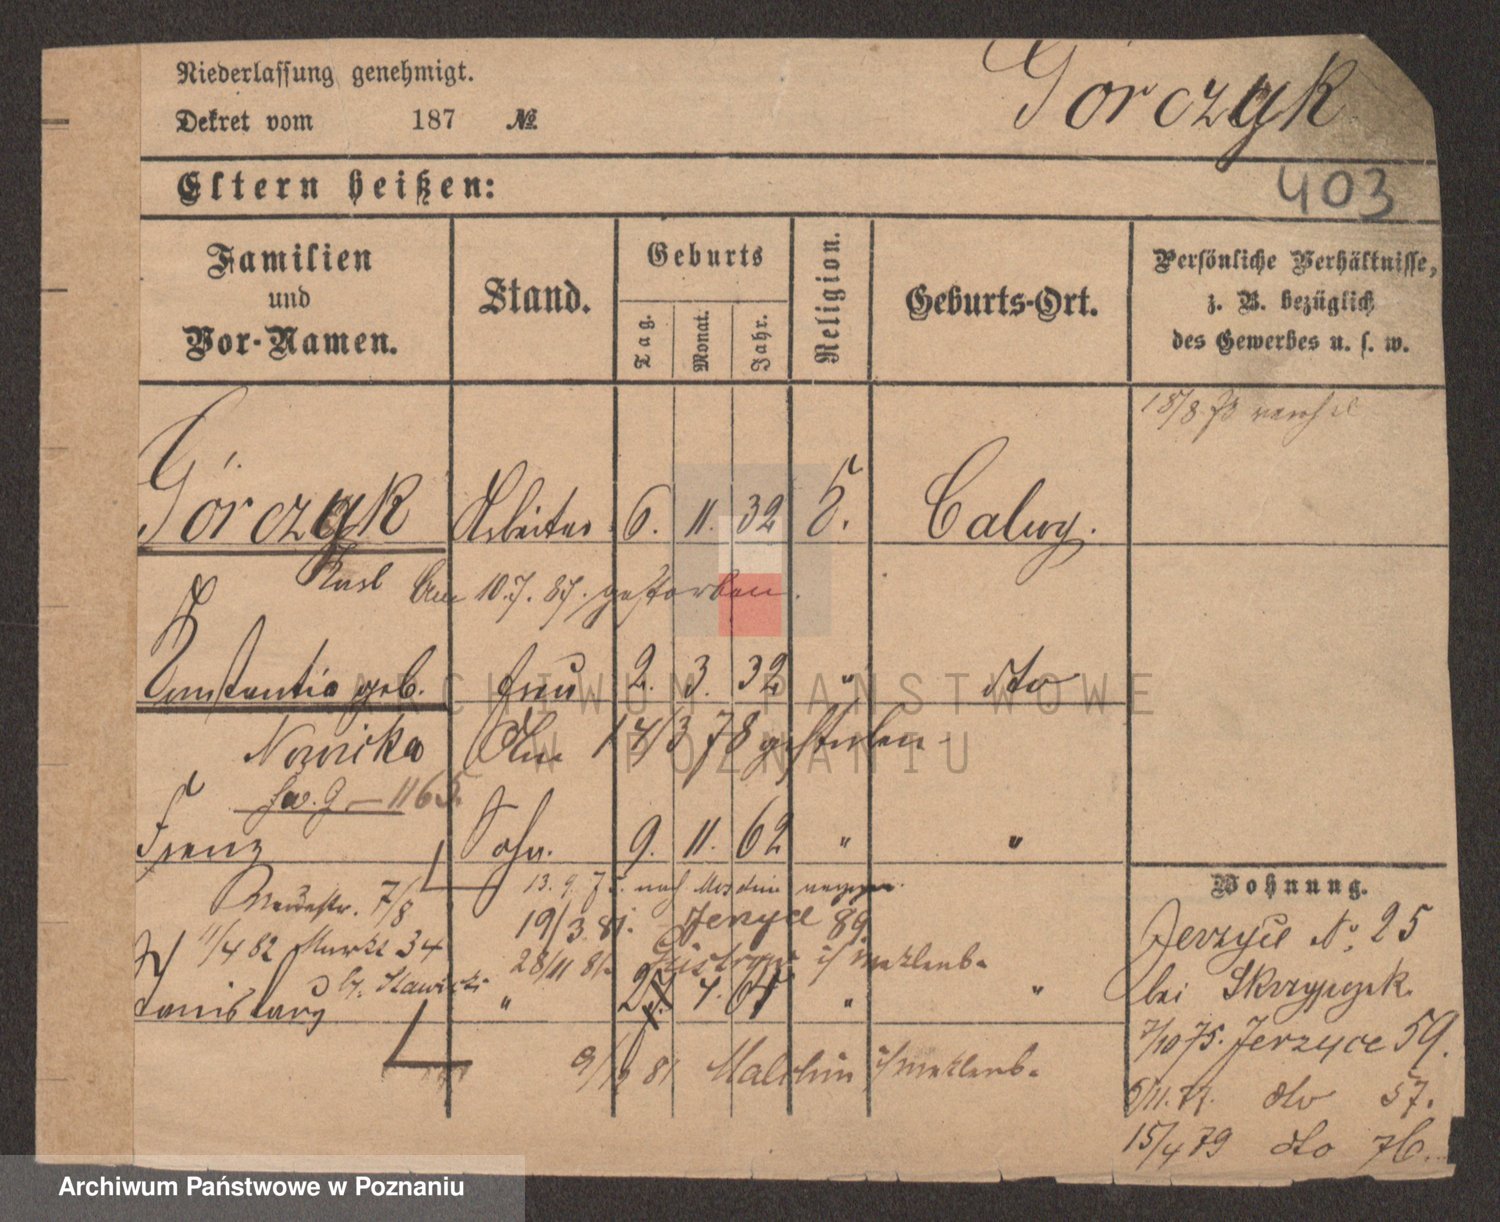 Niederlassung genehmigt.
Górczyk
Dekret vom 187 №
Eltern heißen:
403
Familien und Vor-Namen.
Stand.
Geburts
Tag.
Monat.
Jahr.
Religion.
Geburts-Ort.
Persönliche Verhältnisse, z. B. bezüglich des Gewerbes u. s. w.
18/8 73
Górczyk Arbeiter 6. 11. 32 Calwy.
Karl Am 10.7.87. gestorben.
Constantia geb. Frau 2. 3. 32 " dto
Nowicka Am 14/3 78 gestorben
1165
Franz Sohn. 9. 11. 62 " "
13. 9. nach
7/8
19/3 81. Jerzyce 89
11/4 82 Markt 34
28/11 81. Güstrow i/ Mecklenb.
Stanislaus " 7. " "
81 Malchin i/Mecklenb.
Wohnung.
Jerzyce No. 25
bei Skrzypczak
7/10 75. Jerzyce 59.
5/11. 77. dto 57.
15/4 79 dto 76.
ARCHIWUM PAŃSTWOWE
W POZNANIU
Archiwum Państwowe w Poznaniu